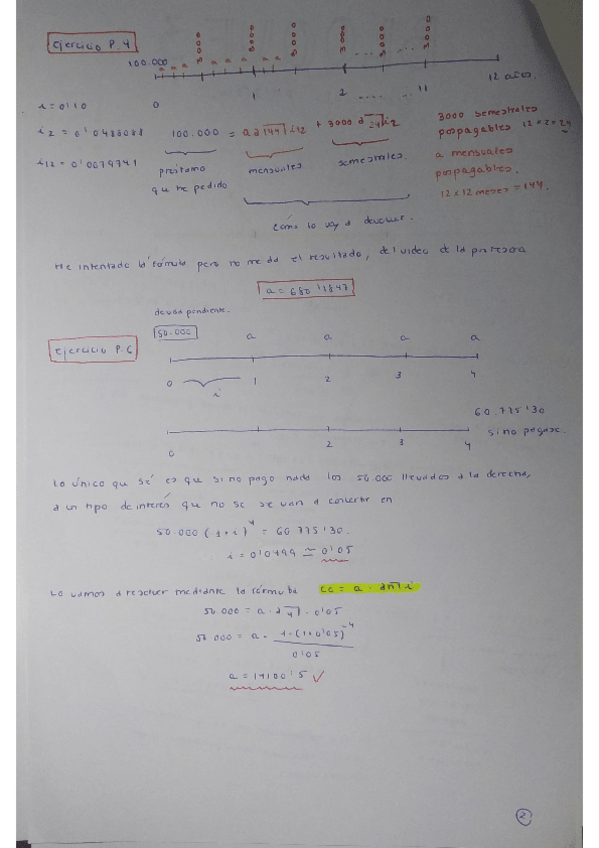 Ejercicio P.4
3000 3000 3000 3000 3000
100.000 a a a a a a a a
0 1 2 ..... 11 12 años.
i = 0'10
i2 = 0'0488088 100.000 = a a144┐i12 + 3000 a24┐i2
i12 = 0'0079741 préstamo mensuales semestrales.
que he pedido
3000 semestrales
pospagables 12 x 2 = 24
a mensuales
pospagables.
12 x 12 meses = 144.
cómo lo voy a devolver.
He intentado la fórmula pero no me da el resultado, del video de la profesora
a = 680'18847
deuda pendiente.
Ejercicio P.6
50.000 a a a a
0 1 2 3 4
i
60.775'30
si no pagase.
0 2 3 4
Lo único que sé es que si no pago nada los 50.000 llevados a la derecha,
a un tipo de interés que no se se van a convertir en
50.000 (1+i)^4 = 60.775'30.
i = 0'0499 ≃ 0'05
Lo vamos a resolver mediante la fórmula C0 = a · an┐i
50.000 = a · a4┐ · 0'05
50.000 = a · 1-(1+0'05)^-4
0'05
a = 14100'5 ✓
2